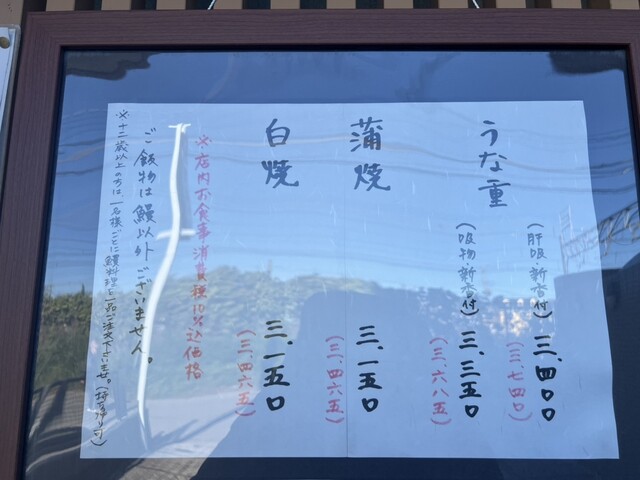 うな重
(肝吸・新香付)三、四〇〇
(三、七四〇)
(吸物・新香付)三、三五〇
(三、六八五)
蒲焼 三、一五〇
(三、四六五)
白焼 三、一五〇
(三、四六五)
※店内お食事消費税10%込価格
ご飯物は鰻以外ございません。
※十二歳以上の方は一名様ごとに鰻料理を一品ご注文下さいませ。